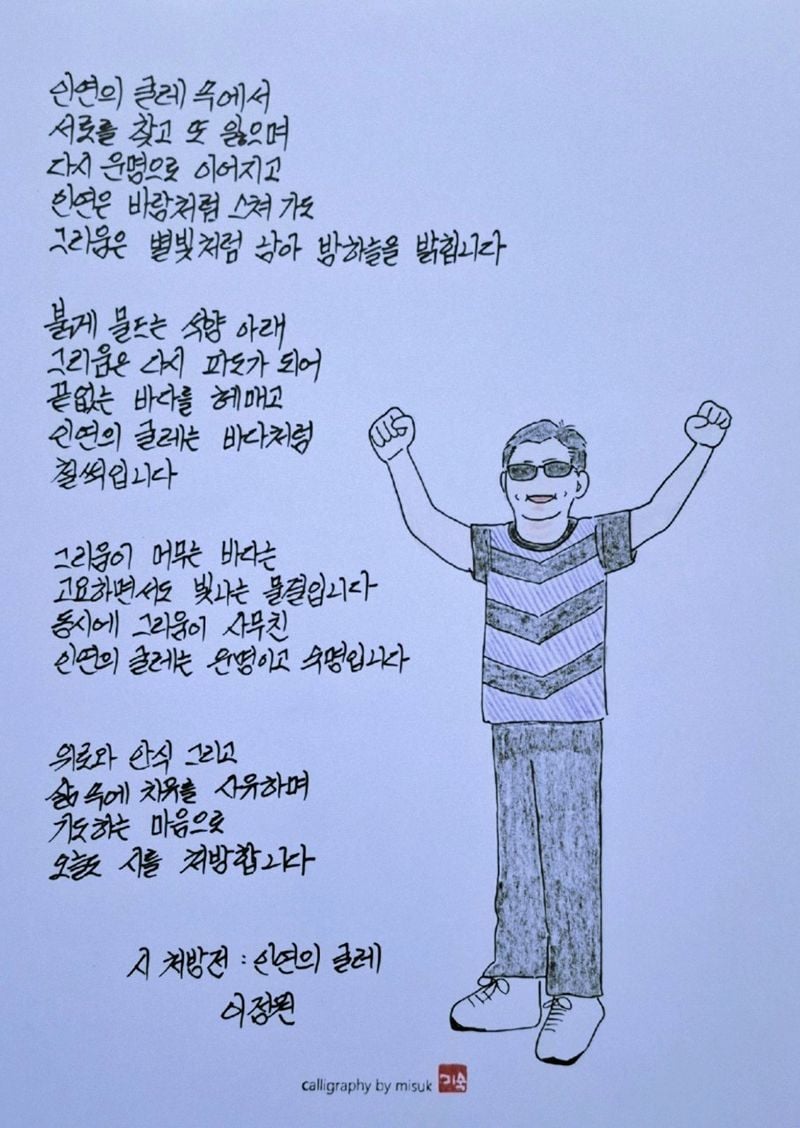 인연의 굴레 속에서
서로를 찾고 또 잃으며
다시 운명으로 이어지고
인연은 바람처럼 스쳐 가도
그리움은 별빛처럼 남아 밤하늘을 밝힙니다
붉게 물드는 석양 아래
그리움은 다시 파도가 되어
끝없는 바다를 헤매고
인연의 굴레는 바다처럼
철썩입니다
그리움이 머무는 바다는
고요하면서도 빛나는 물결입니다
동시에 그리움이 사무친
인연의 굴레는 운명이고 숙명입니다
위로와 안식 그리고
삶 속에 치유를 사유하며
기도하는 마음으로
오늘도 시를 처방합니다
시 처방전 : 인연의 굴레
이정원
calligraphy by misuk 미숙